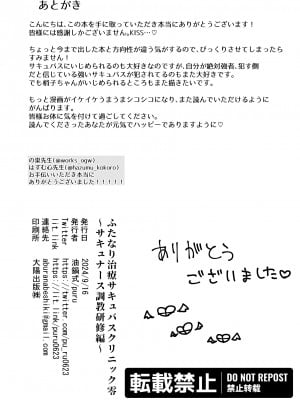 あとがき
こんにちは、この本を手に取っていただき本当にありがとうございます！
皆様には感謝しかございません、KISS…♡
ちょっと今まで出した本と方向性が違う気がするので、びっくりさせてしまったら
すみません！
サキュバスにいじめられるのも大好きなのですが、自分が絶対強者、犯す側
だと信じている強いサキュバスが犯されてるのもまた大好きです。
でも梢子ちゃんがいじめられるところもまた描きたいです。
もっと漫画がイケイケうまうまシコシコになり、また読んでいただけるように
がんばります。
皆様お体に気を付けて過ごしてください。
読んでくださったあなたが元気でハッピーでありますように♡
の泉先生(@works_ogw)
はずむ心先生(@hazumu_kokoro)
お手伝いいただき本当に
ありがとうございました！！！！！
ふたなり治療サキュバスクリニック零
～サキュナース調教研修編～
発行日 2024/9/16
発行者 油鍋式/puru
Twitter https://twitter.com/pu_ru0623
lit.link https://lit.link/puru0623
連絡先 aburanabeshiki@gmail.com
印刷所 大陽出版㈱
ありがとう
ございました♡
転載禁止
DO NOT REPOST